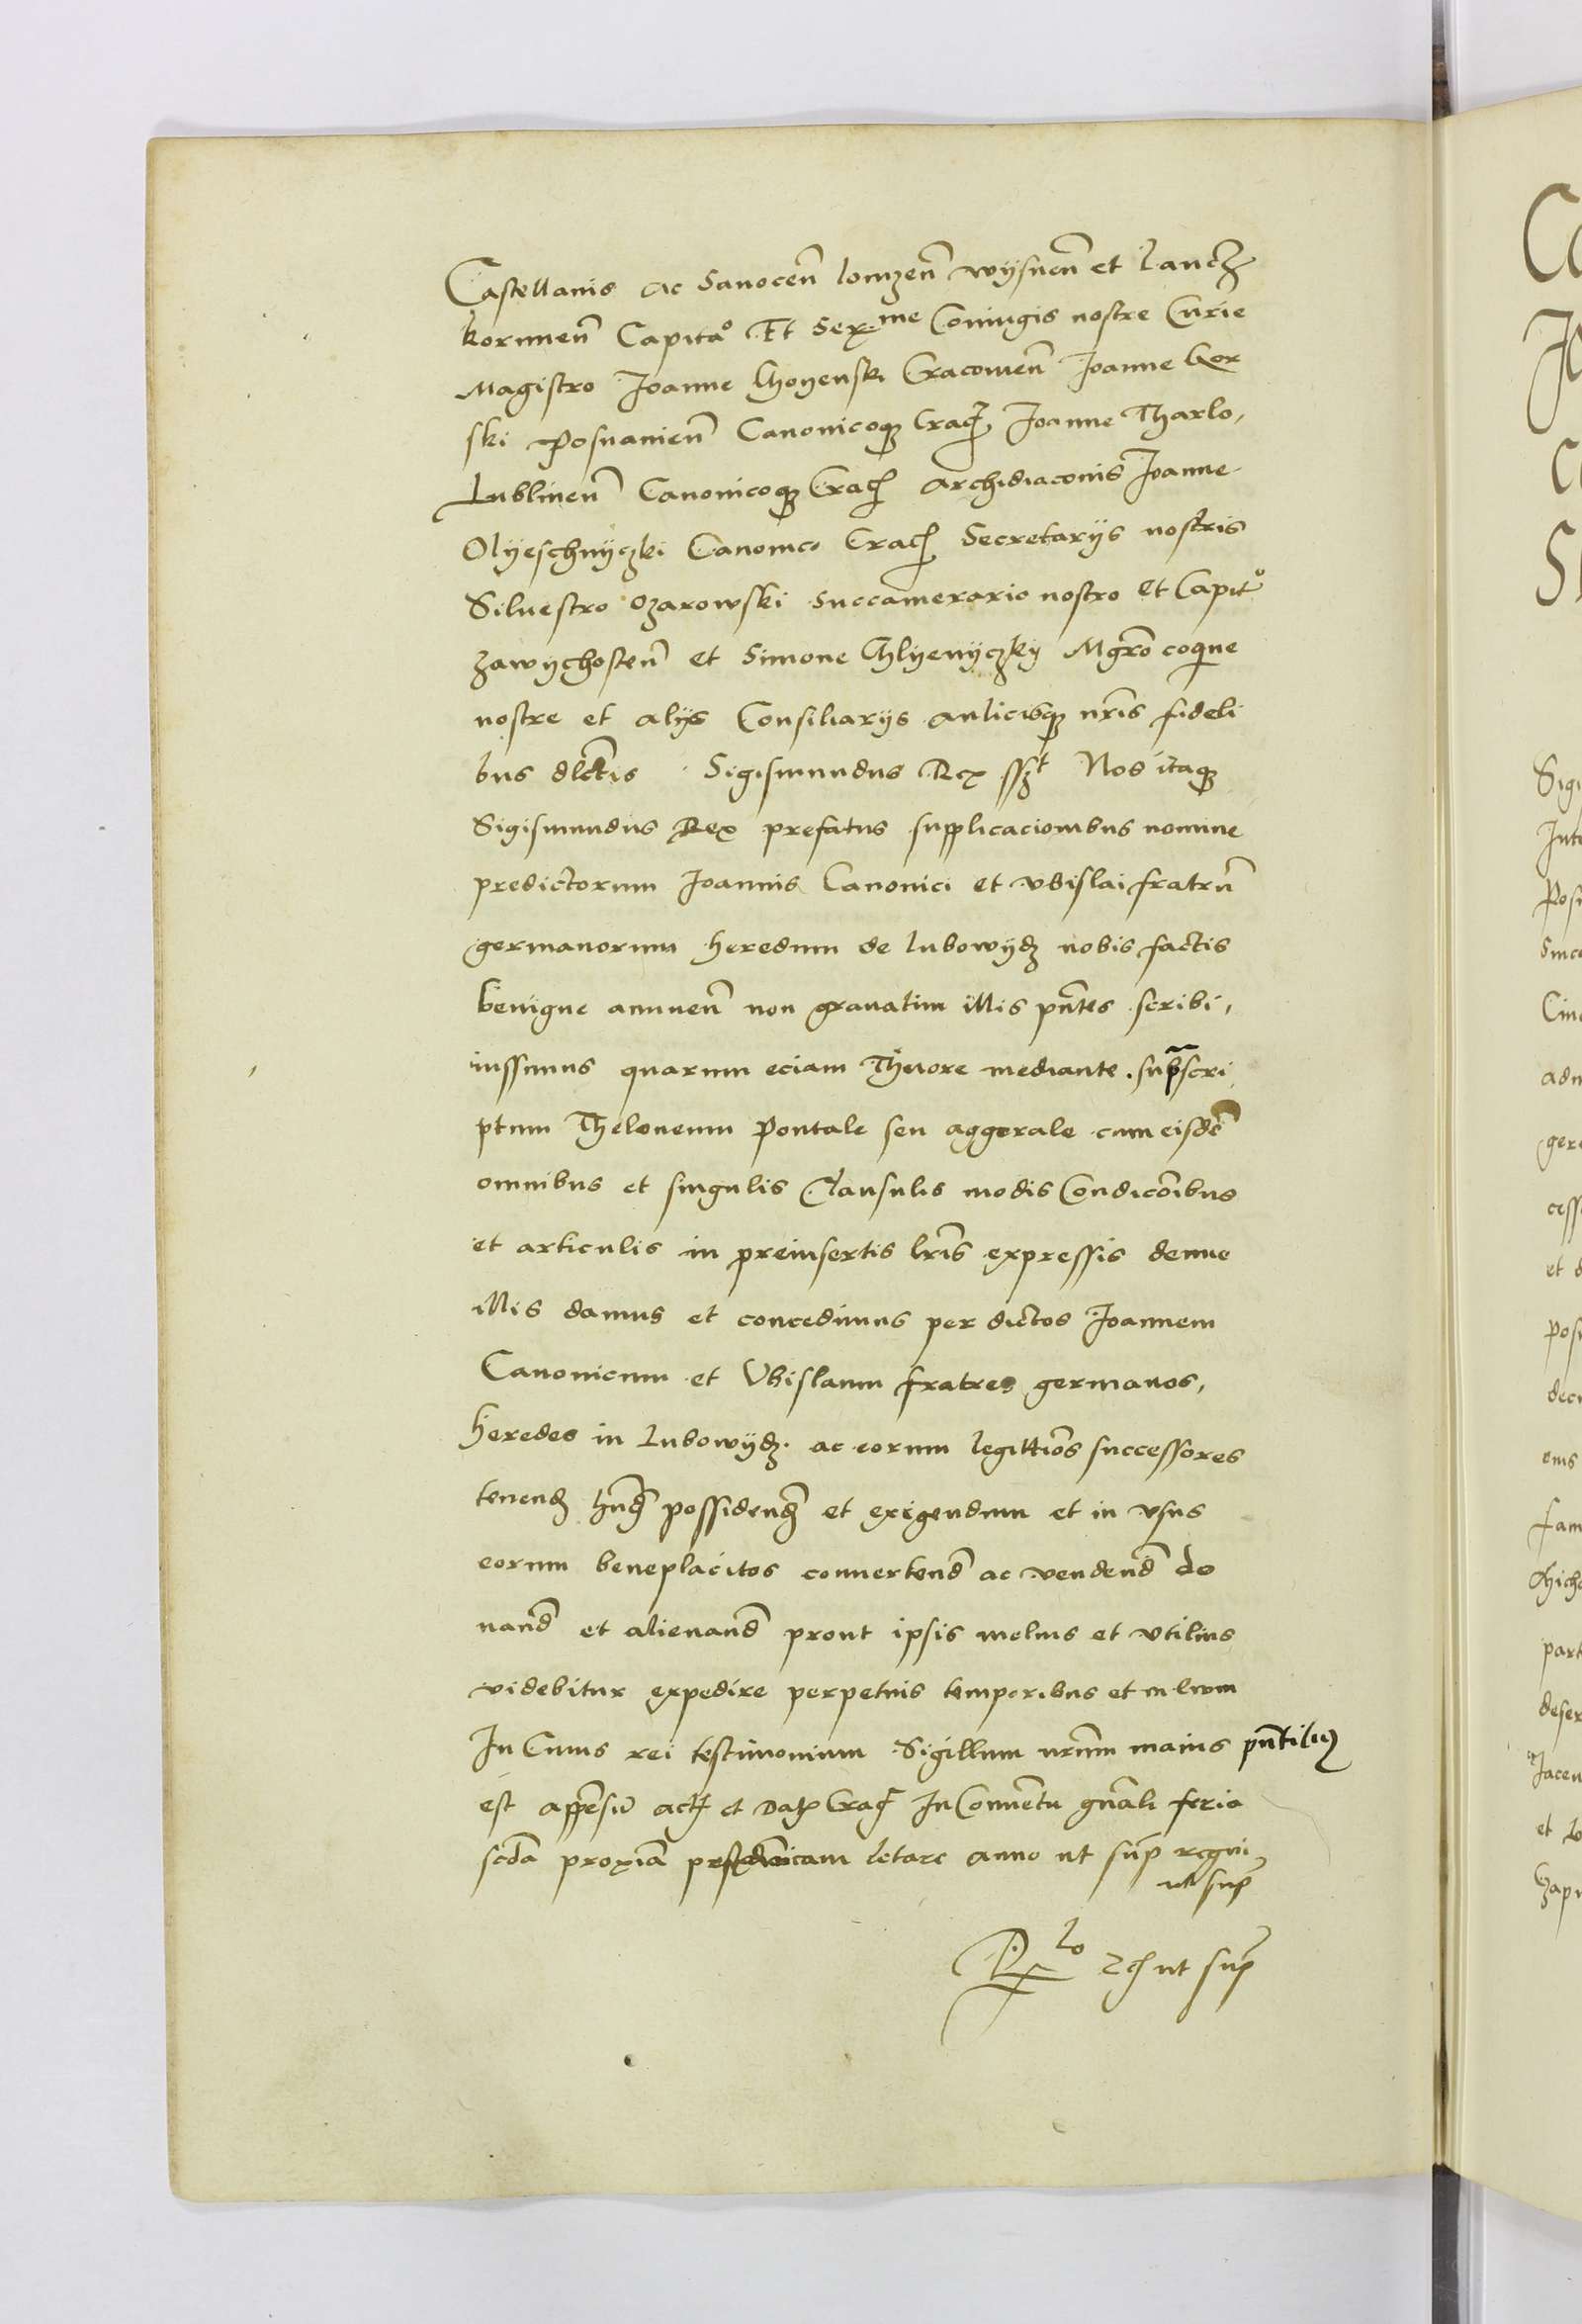 Castellanis ac Sanocen̄ lomzen̄ wysnen̄ et Lancz
korunen̄ Capitaᵒ Et Serᵐᵉ Coniugis nostre Curie
Magistro Joanne Choyenski Cracouien̄ Joanne Gor
ski Posnanien̄ Canonicoq3 Crac̄ Joanne Tharlo,
Lublinen̄ Canonicoq3 Crac̄ Archidiaconis Joanne
Olyeschnyczki Canonico Crac̄ Secretarys nostris
Siluestro Ozarowski Succamerario nostro Et Capitᵒ
zawychosten̄ et Simone Chlyenyczky Mgrō coquine
nostre et alys Consiliarys aulicisq3 nrīs fideli
bus dlctīs Sigismundus Rex sszt Nos itaq3
Sigismundus Rex prefatus supplicacionibus nomine
predictorum Joannis Canonici et Vbislai fratrū
germanorum heredum de lubowydz nobis factis
benigne annuen̄ non grauatim illis pn̄tes scribi,
iussimus quarum eciam Thenore mediante supᵃscri
ptum Theloneum Pontale seu aggerale cum eisdē
omnibus et singulis Clausulis modis Condicōibus
et articulis in preinsertis lrīs expressis denuo
illis damus et concedimus per dictos Joannem
Canonicum et Vbislaum fratres germanos,
heredes in Lubowydz ac eorum legittīos successores
tenend̄ hn̄d̄ possidend̄ et exigendum et in vsus
eorum beneplacitos conuertend̄ ac vendend̄ do
nand̄ et alienand̄ prout ipsis melius et vtilius
videbitur expedire perpetuis temporibus et in euum
In Cuius rei testimonium Sigillum nrūm maius pn̄tib9
est appēsū act̄ et Dat̄ Crac̄ In Conuētu gn̄ali feria
scd̄a proxīa post dn̄icam letare anno ut sup̄ regni
ut sup̄
Rlo ut sup̄